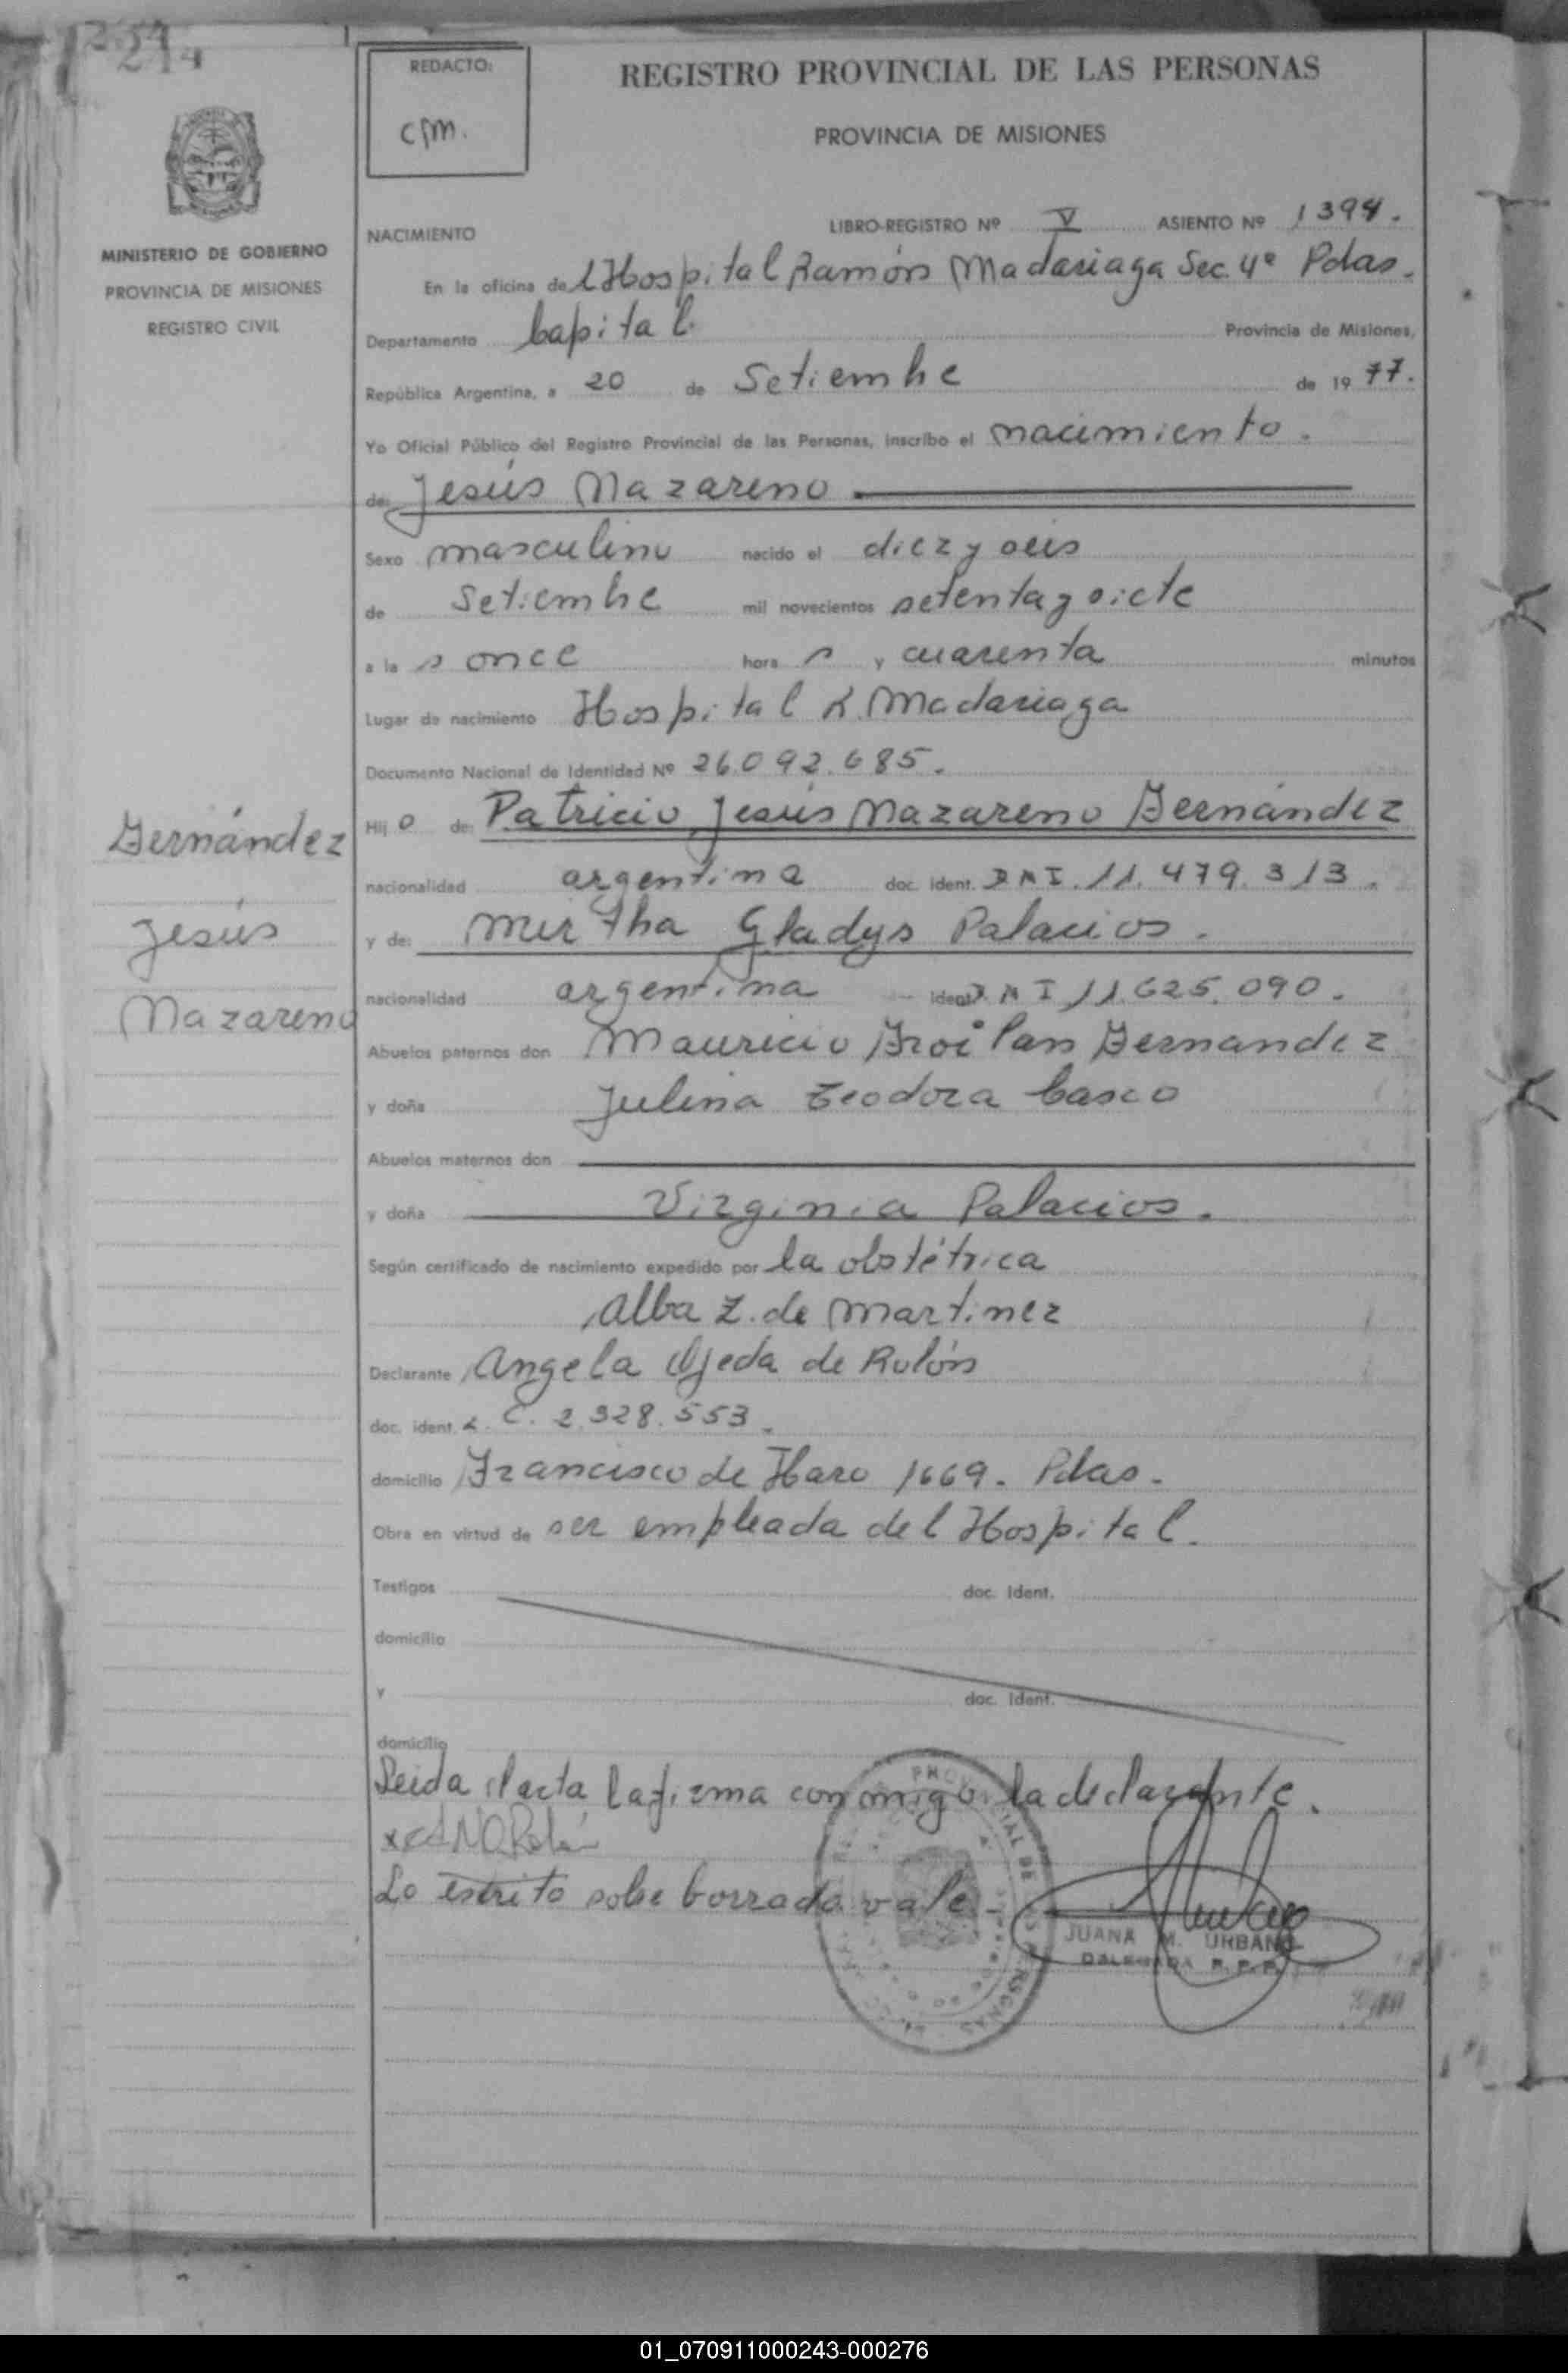 214
REDACTO:
cpm.
REGISTRO PROVINCIAL DE LAS PERSONAS
PROVINCIA DE MISIONES
MINISTERIO DE GOBIERNO
PROVINCIA DE MISIONES
REGISTRO CIVIL
NACIMIENTO LIBRO-REGISTRO Nº V ASIENTO Nº 1394.
En la oficina del Hospital Ramón Madariaga Sec. 4ª Pdas.
Departamento Capital Provincia de Misiones,
República Argentina, a 20 de Setiembre de 1977.
Yo Oficial Público del Registro Provincial de las Personas, inscribo el nacimiento.
de: Jesús Nazareno
Sexo masculino nacido el diez y seis
de Setiembre mil novecientos setenta y siete
a la s once hora s y cuarenta minutos
Lugar de nacimiento Hospital R. Madariaga
Documento Nacional de Identidad Nº 26.092.685.
Hij o de: Patricio Jesús Nazareno Fernández
nacionalidad argentina doc. ident. DNI. 11.479.313.
y de: Mirtha Gladys Palacios.
nacionalidad argentina ident. DNI 11.625.090.
Abuelos paternos don Mauricio Froilan Fernandez
y doña Julina Teodora Casco
Abuelos maternos don
y doña Virginia Palacios.
Según certificado de nacimiento expedido por la obstétrica
Alba Z. de Martinez
Declarante Angela Ojeda de Rolón
doc. ident. L.C. 2.328.553.
domicilio Francisco de Haro 1669. Pdas.
Obra en virtud de ser empleada del Hospital.
Testigos doc. Ident.
domicilio
y doc. Ident.
domicilio
Leida el acta la firma conmigo la declarante.
Lo escrito sobre borrado vale.
JUANA M. URBANO
DELEGADA R.P.P.
Fernández
Jesús
Nazareno
01_070911000243-000276